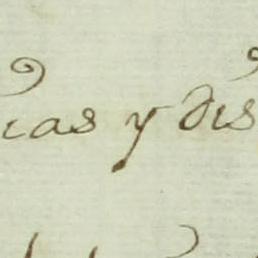 ias y dis